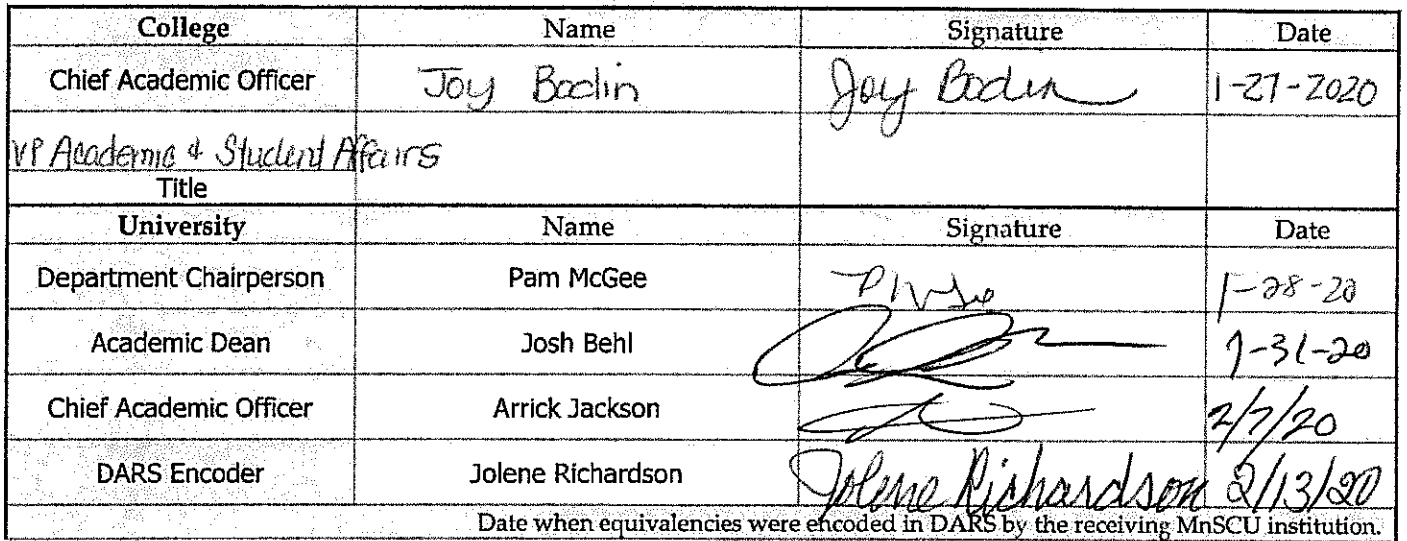 College Name Signature Date
Chief Academic Officer Joy Bodin Joy Bodin 1-27-2020
VP Academic & Student Affairs
Title
University Name Signature Date
Department Chairperson Pam McGee 1-28-20
Academic Dean Josh Behl 1-31-20
Chief Academic Officer Arrick Jackson 2/7/20
DARS Encoder Jolene Richardson Jolene Richardson 2/13/20
Date when equivalencies were encoded in DARS by the receiving MnSCU institution.